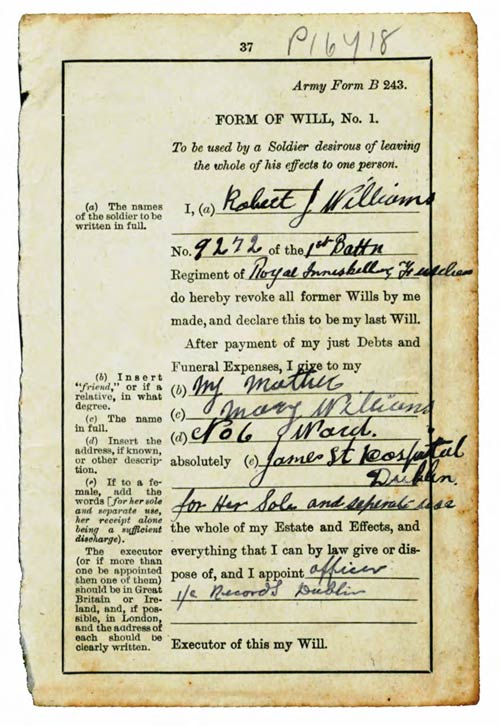 37
P16418
Army Form B 243.
FORM OF WILL, No. 1.
To be used by a Soldier desirous of leaving
the whole of his effects to one person.
(a) The names
of the soldier to be
written in full.
I, (a) Robert J Williams
No. 9272 of the 1st Battn
Regiment of Royal Inniskilling Fusiliers
do hereby revoke all former Wills by me
made, and declare this to be my last Will.
After payment of my just Debts and
Funeral Expenses, I give to my
(b) Insert
"friend," or if a
relative, in what
degree.
(c) The name
in full.
(d) Insert the
address, if known,
or other descrip-
tion.
(e) If to a fe-
male, add the
words [for her sole
and separate use,
her receipt alone
being a sufficient
discharge).
The executor
(or if more than
one be appointed
then one of them)
should be in Great
Britain or Ire-
land, and, if pos-
sible, in London,
and the address of
each should be
clearly written.
(b) My Mother
(c) Mary Williams
(d) No 6 Ward.
absolutely (e) James St Hospital
Dublin.
for Her Sole and seperate use
the whole of my Estate and Effects, and
everything that I can by law give or dis-
pose of, and I appoint officer
i/c Records Dublin
Executor of this my Will.